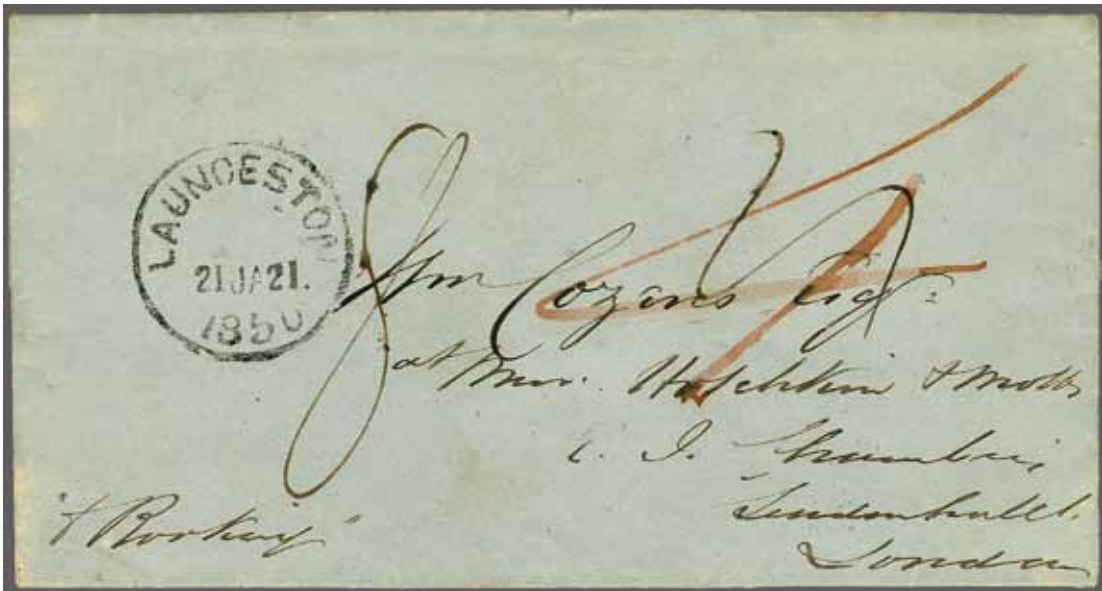 LAUNCESTON
21 JA 21.
1850
8
Wm Cozens Esqr
at Messrs. Hotchkin & Mobbs
E. I. Chambers
Leadenhall St.
London
"p Rookery"